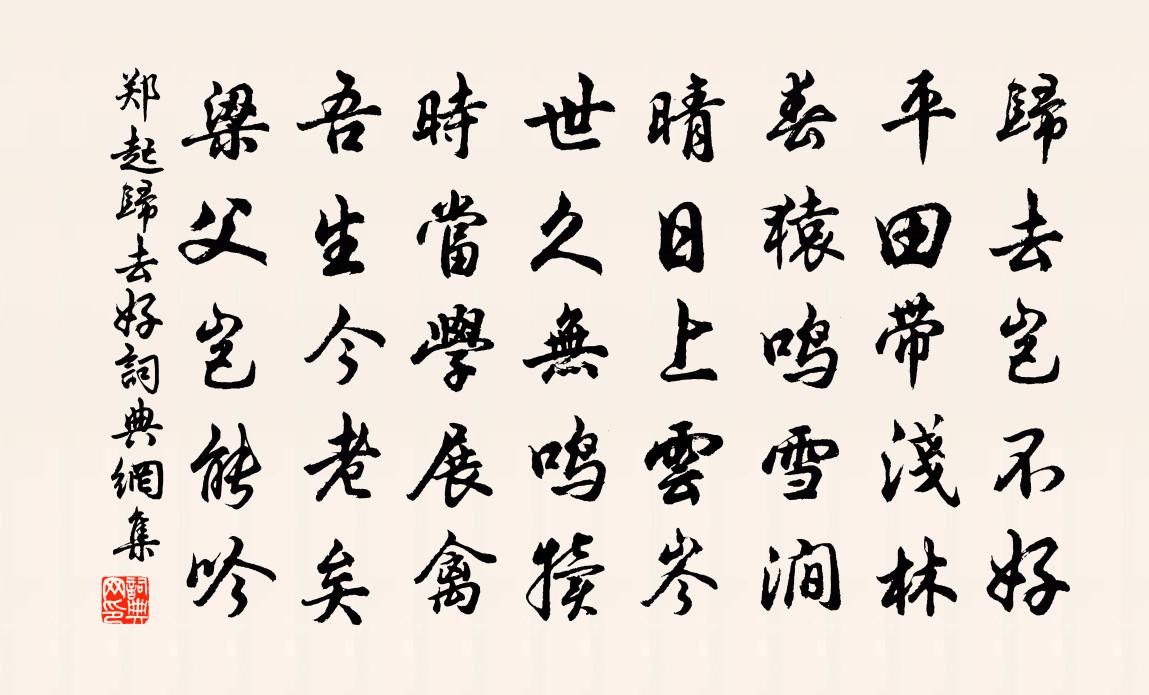 歸去豈不好
平田带淺林
春猿鸣雪澗
晴日上雲岑
世久無鸣犢
時當學展禽
吾生今老矣
梁父豈能吟
郑起歸去好詞典網集
詞典网印